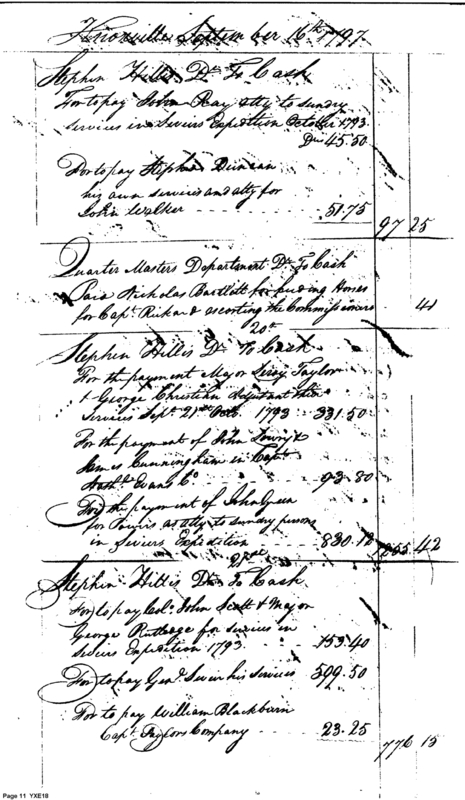 Knoxville September 16th 1797
Stephen Hillis Dr To Cash
For to pay John Ray atty to sundry
services in Seviers Expedition October 1793
Drs 45.50
For to pay Stephen Duncan
his own services and atty for
John Walker - - - 51.75
97 25
Quarter Masters Department Dr To Cash
Paid Nicholas Bartlett for feeding Horses
for Capt. Rikard escorting the Commissioners 41
20th
Stephen Hillis Dr To Cash
For the payment Major Leroy Taylor
& George Christian Adjutant their
Services Sept. 21st Octr 1793 - 331.50
For the payment of John Lowry &
James Cunningham in Capt.
Nathl. Evans Co. - - 93.80
For the payment of John Green
for Powers as atty to sundry persons
in Seviers Expedition - - 830.12
42
Stephen Hillis Dr To Cash
For to pay Col. John Scott & Major
George Rutledge for services in
Seviers Expedition 1793 - - 153.40
For to pay Genl. Sevier his Services 599.50
For to pay William Blackburn
Capt. Taylors Company - - 23.25
776 15
Page 11 YXE18